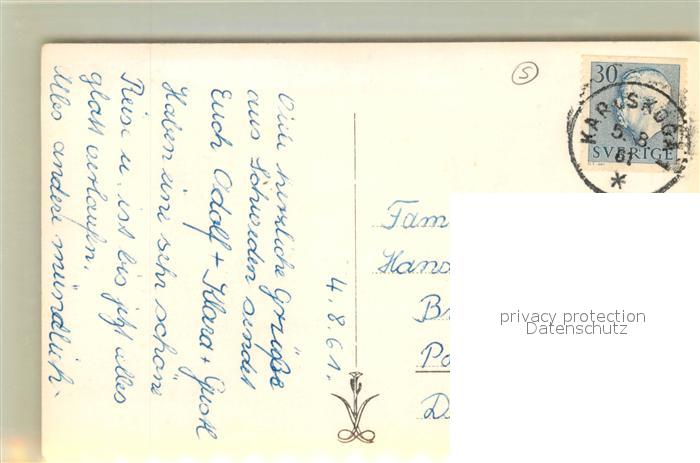 4.8.61.
Viele herzliche Grüße
aus Schweden sendet
Euch Adolf + Klara + Gustl
Haben eine sehr schöne
Reise u. ist bis jetzt alles
glatt verlaufen.
Alles andere mündlich.
S
30
KARLSKOGA
5.8
61
*
SVERIGE
Fam
Hand
B
Po
D
privacy protection
Datenschutz